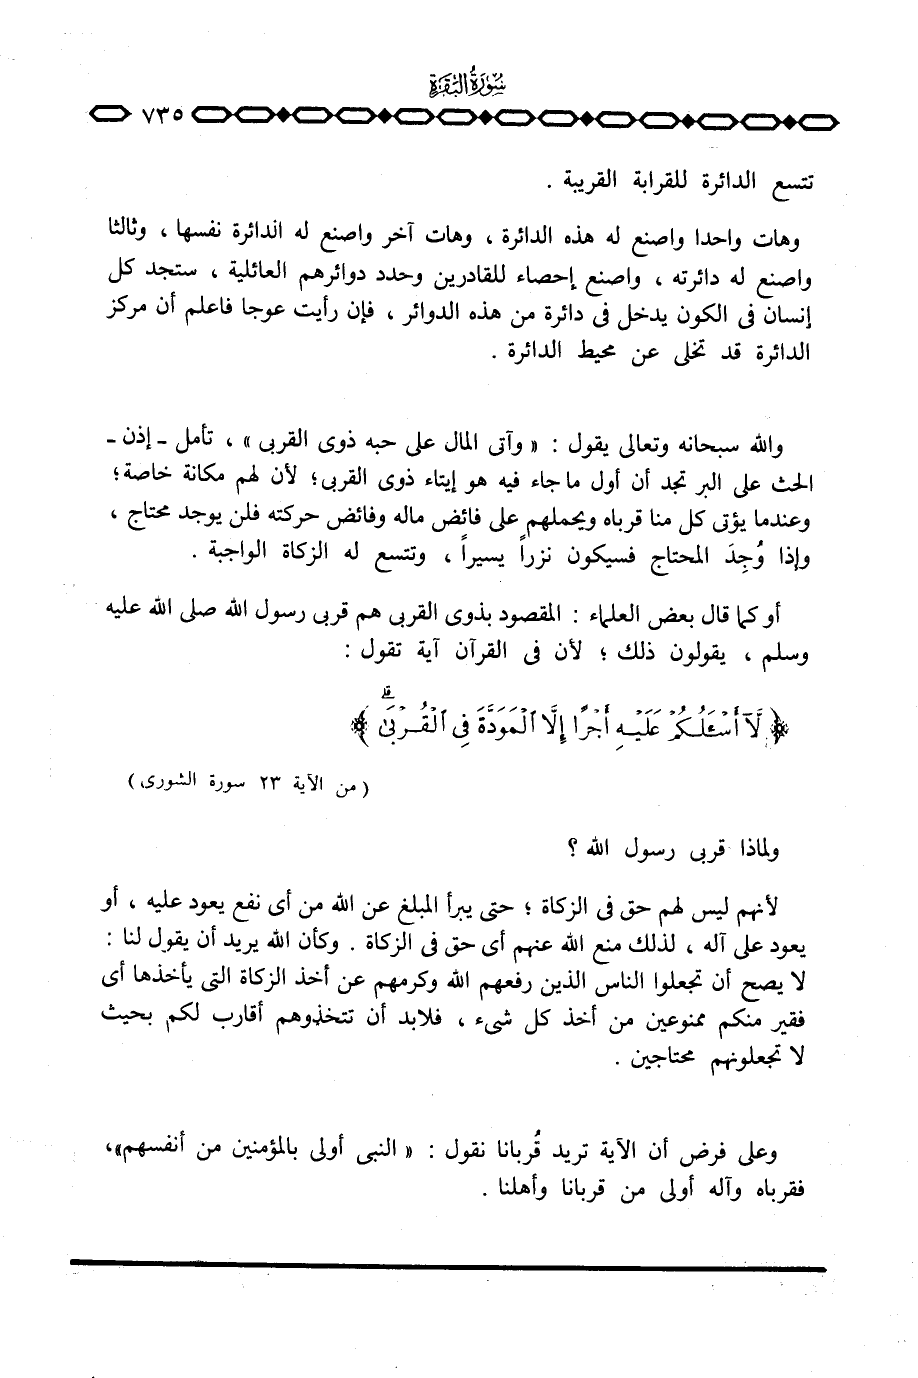 سُورَةُ البَقَرَةِ
٧٣٥
تتسع الدائرة للقرابة القريبة .
وهات واحدا واصنع له هذه الدائرة ، وهات آخر واصنع له الدائرة نفسها ، وثالثا
واصنع له دائرته ، واصنع إحصاء للقادرين وحدد دوائرهم العائلية ، ستجد كل
إنسان فى الكون يدخل فى دائرة من هذه الدوائر ، فإن رأيت عوجا فاعلم أن مركز
الدائرة قد تخلى عن محيط الدائرة .
والله سبحانه وتعالى يقول : « وآتى المال على حبه ذوى القربى » ، تأمل ـ إذن ـ
الحث على البر تجد أن أول ما جاء فيه هو إيتاء ذوى القربى؛ لأن لهم مكانة خاصة؛
وعندما يؤتى كل منا قرباه ويحملهم على فائض ماله وفائض حركته فلن يوجد محتاج ،
وإذا وُجِدَ المحتاج فسيكون نزراً يسيراً ، وتتسع له الزكاة الواجبة .
أو كما قال بعض العلماء : المقصود بذوى القربى هم قربى رسول الله صلى الله عليه
وسلم ، يقولون ذلك ؛ لأن فى القرآن آية تقول :
﴿ لَّآ أَسْـَٔلُكُمْ عَلَيْهِ أَجْرًا إِلَّا ٱلْمَوَدَّةَ فِى ٱلْقُرْبَىٰ ۗ ﴾
( من الآية ٢٣ سورة الشورى )
ولماذا قربى رسول الله ؟
لأنهم ليس لهم حق فى الزكاة ؛ حتى يبرأ المبلغ عن الله من أى نفع يعود عليه ، أو
يعود على آله ، لذلك منع الله عنهم أى حق فى الزكاة . وكأن الله يريد أن يقول لنا :
لا يصح أن تجعلوا الناس الذين رفعهم الله وكرمهم عن أخذ الزكاة التى يأخذها أى
فقير منكم ممنوعين من أخذ كل شىء ، فلابد أن تتخذوهم أقارب لكم بحيث
لا تجعلونهم محتاجين .
وعلى فرض أن الآية تريد قُربانا نقول : « النبى أولى بالمؤمنين من أنفسهم»،
فقرباه وآله أولى من قربانا وأهلنا .